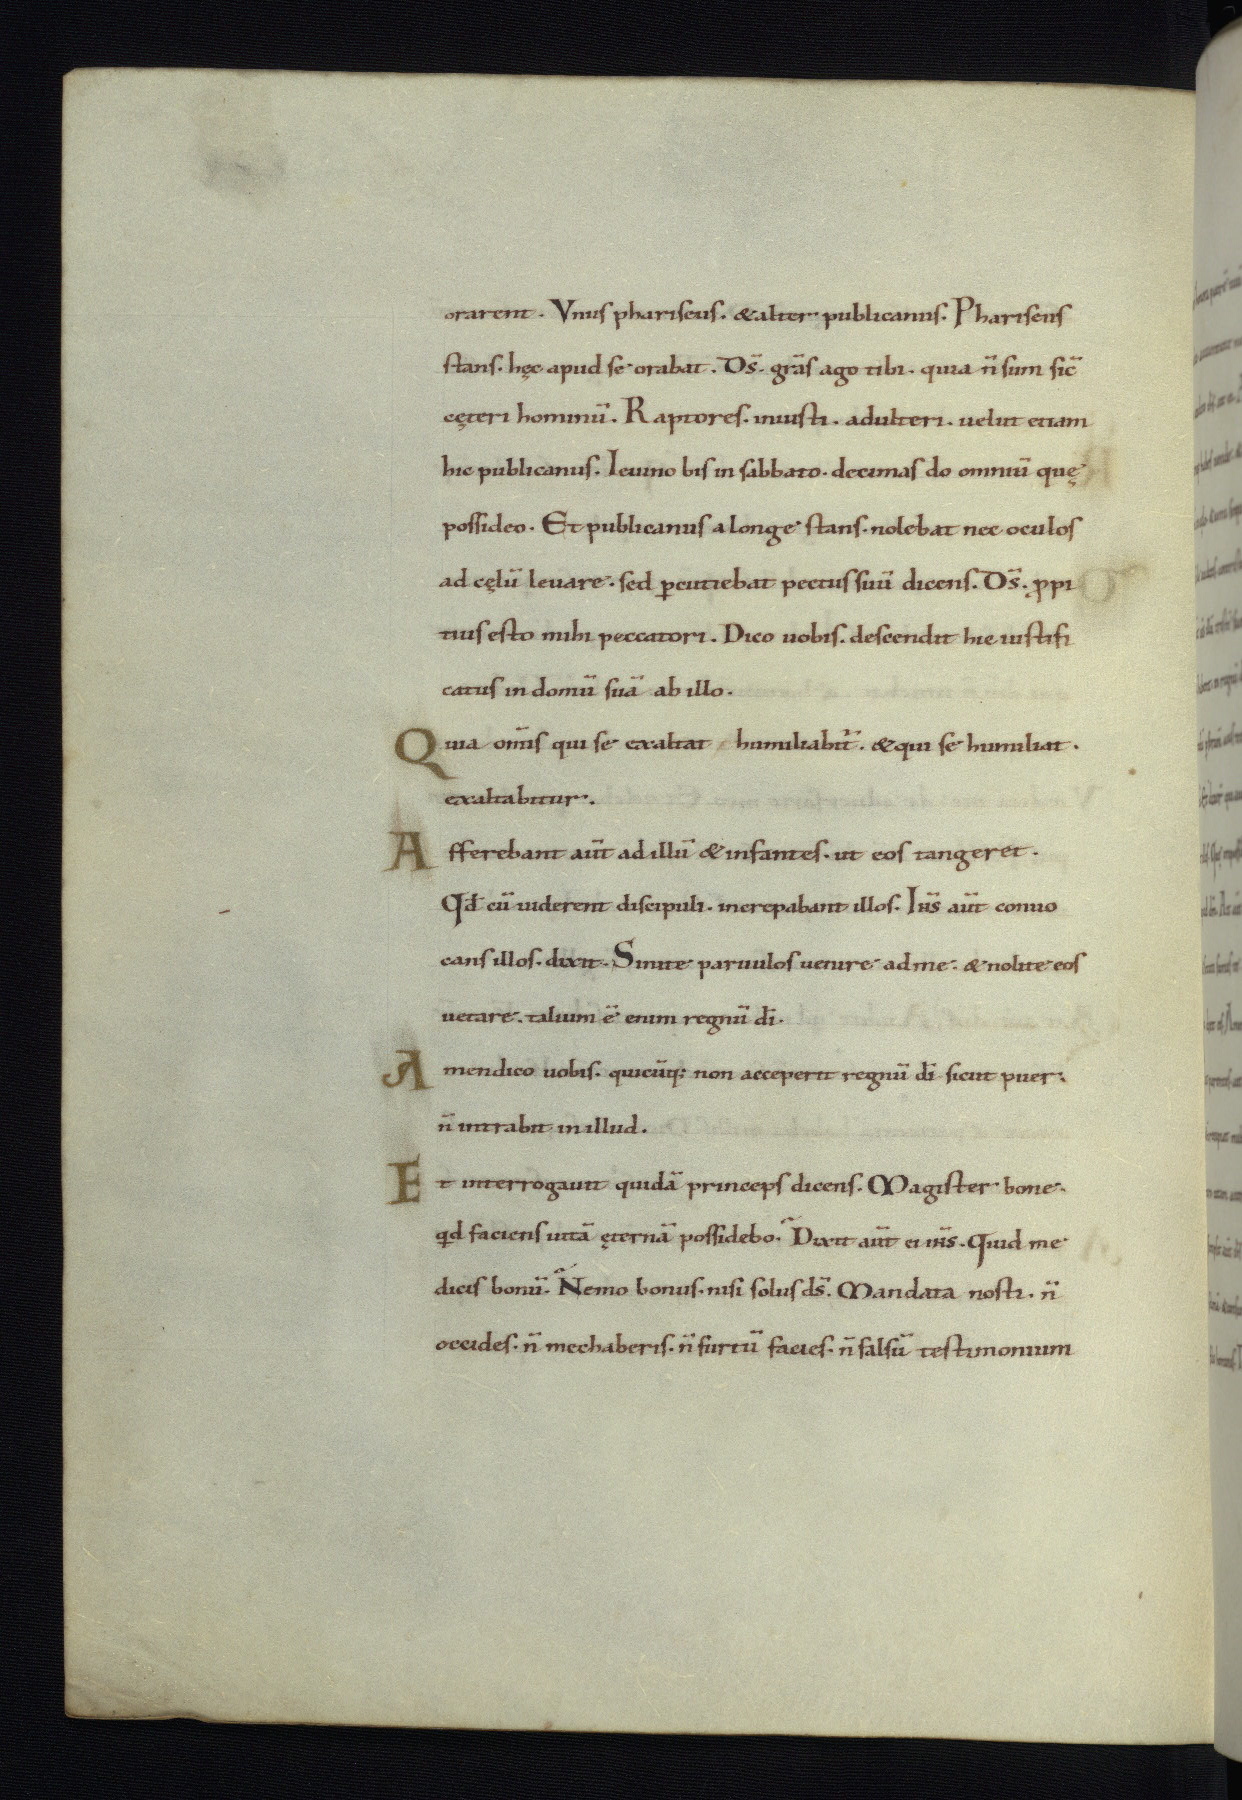 orarent. Vnus phariseus. & alter publicanus. Phariseus
stans. hęc apud se orabat. D̄s. grās ago tibi. quia n̄ sum sic̄
cęteri hominū. Raptores. iniusti. adulteri. uelut etiam
hic publicanus. Ieiuno bis in sabbato. decimas do omniū quę
possideo. Et publicanus a longe stans. nolebat nec oculos
ad cęlū leuare. sed ꝑcutiebat pectus suū dicens. D̄s. ꝓpi
tius esto mihi peccatori. Dico uobis. descendit hic iustifi
catus in domū suā ab illo.
Quia om̄is qui se exaltat humiliabit̄. & qui se humiliat.
exaltabitur.
Afferebant aūt ad illū & infantes. ut eos tangeret.
Qd̄ cū uiderent discipuli. increpabant illos. Ih̄s aūt conuo
cans illos. dixit. Sinite paruulos uenire ad me. & nolite eos
uetare. talium ē enim regnū dī.
Amen dico uobis. quicūq; non acceperit regnū dī sicut puer.
n̄ intrabit in illud.
Et interrogauit quidā princeps dicens. Magister bone.
qd faciens uitā ęternā possidebo. Dixit aūt ei ih̄s. Quid me
dicis bonū. Nemo bonus. nisi solus d̄s. Mandata nosti. n̄
occides. n̄ mechaberis. n̄ furtū facies. n̄ falsū testimonium